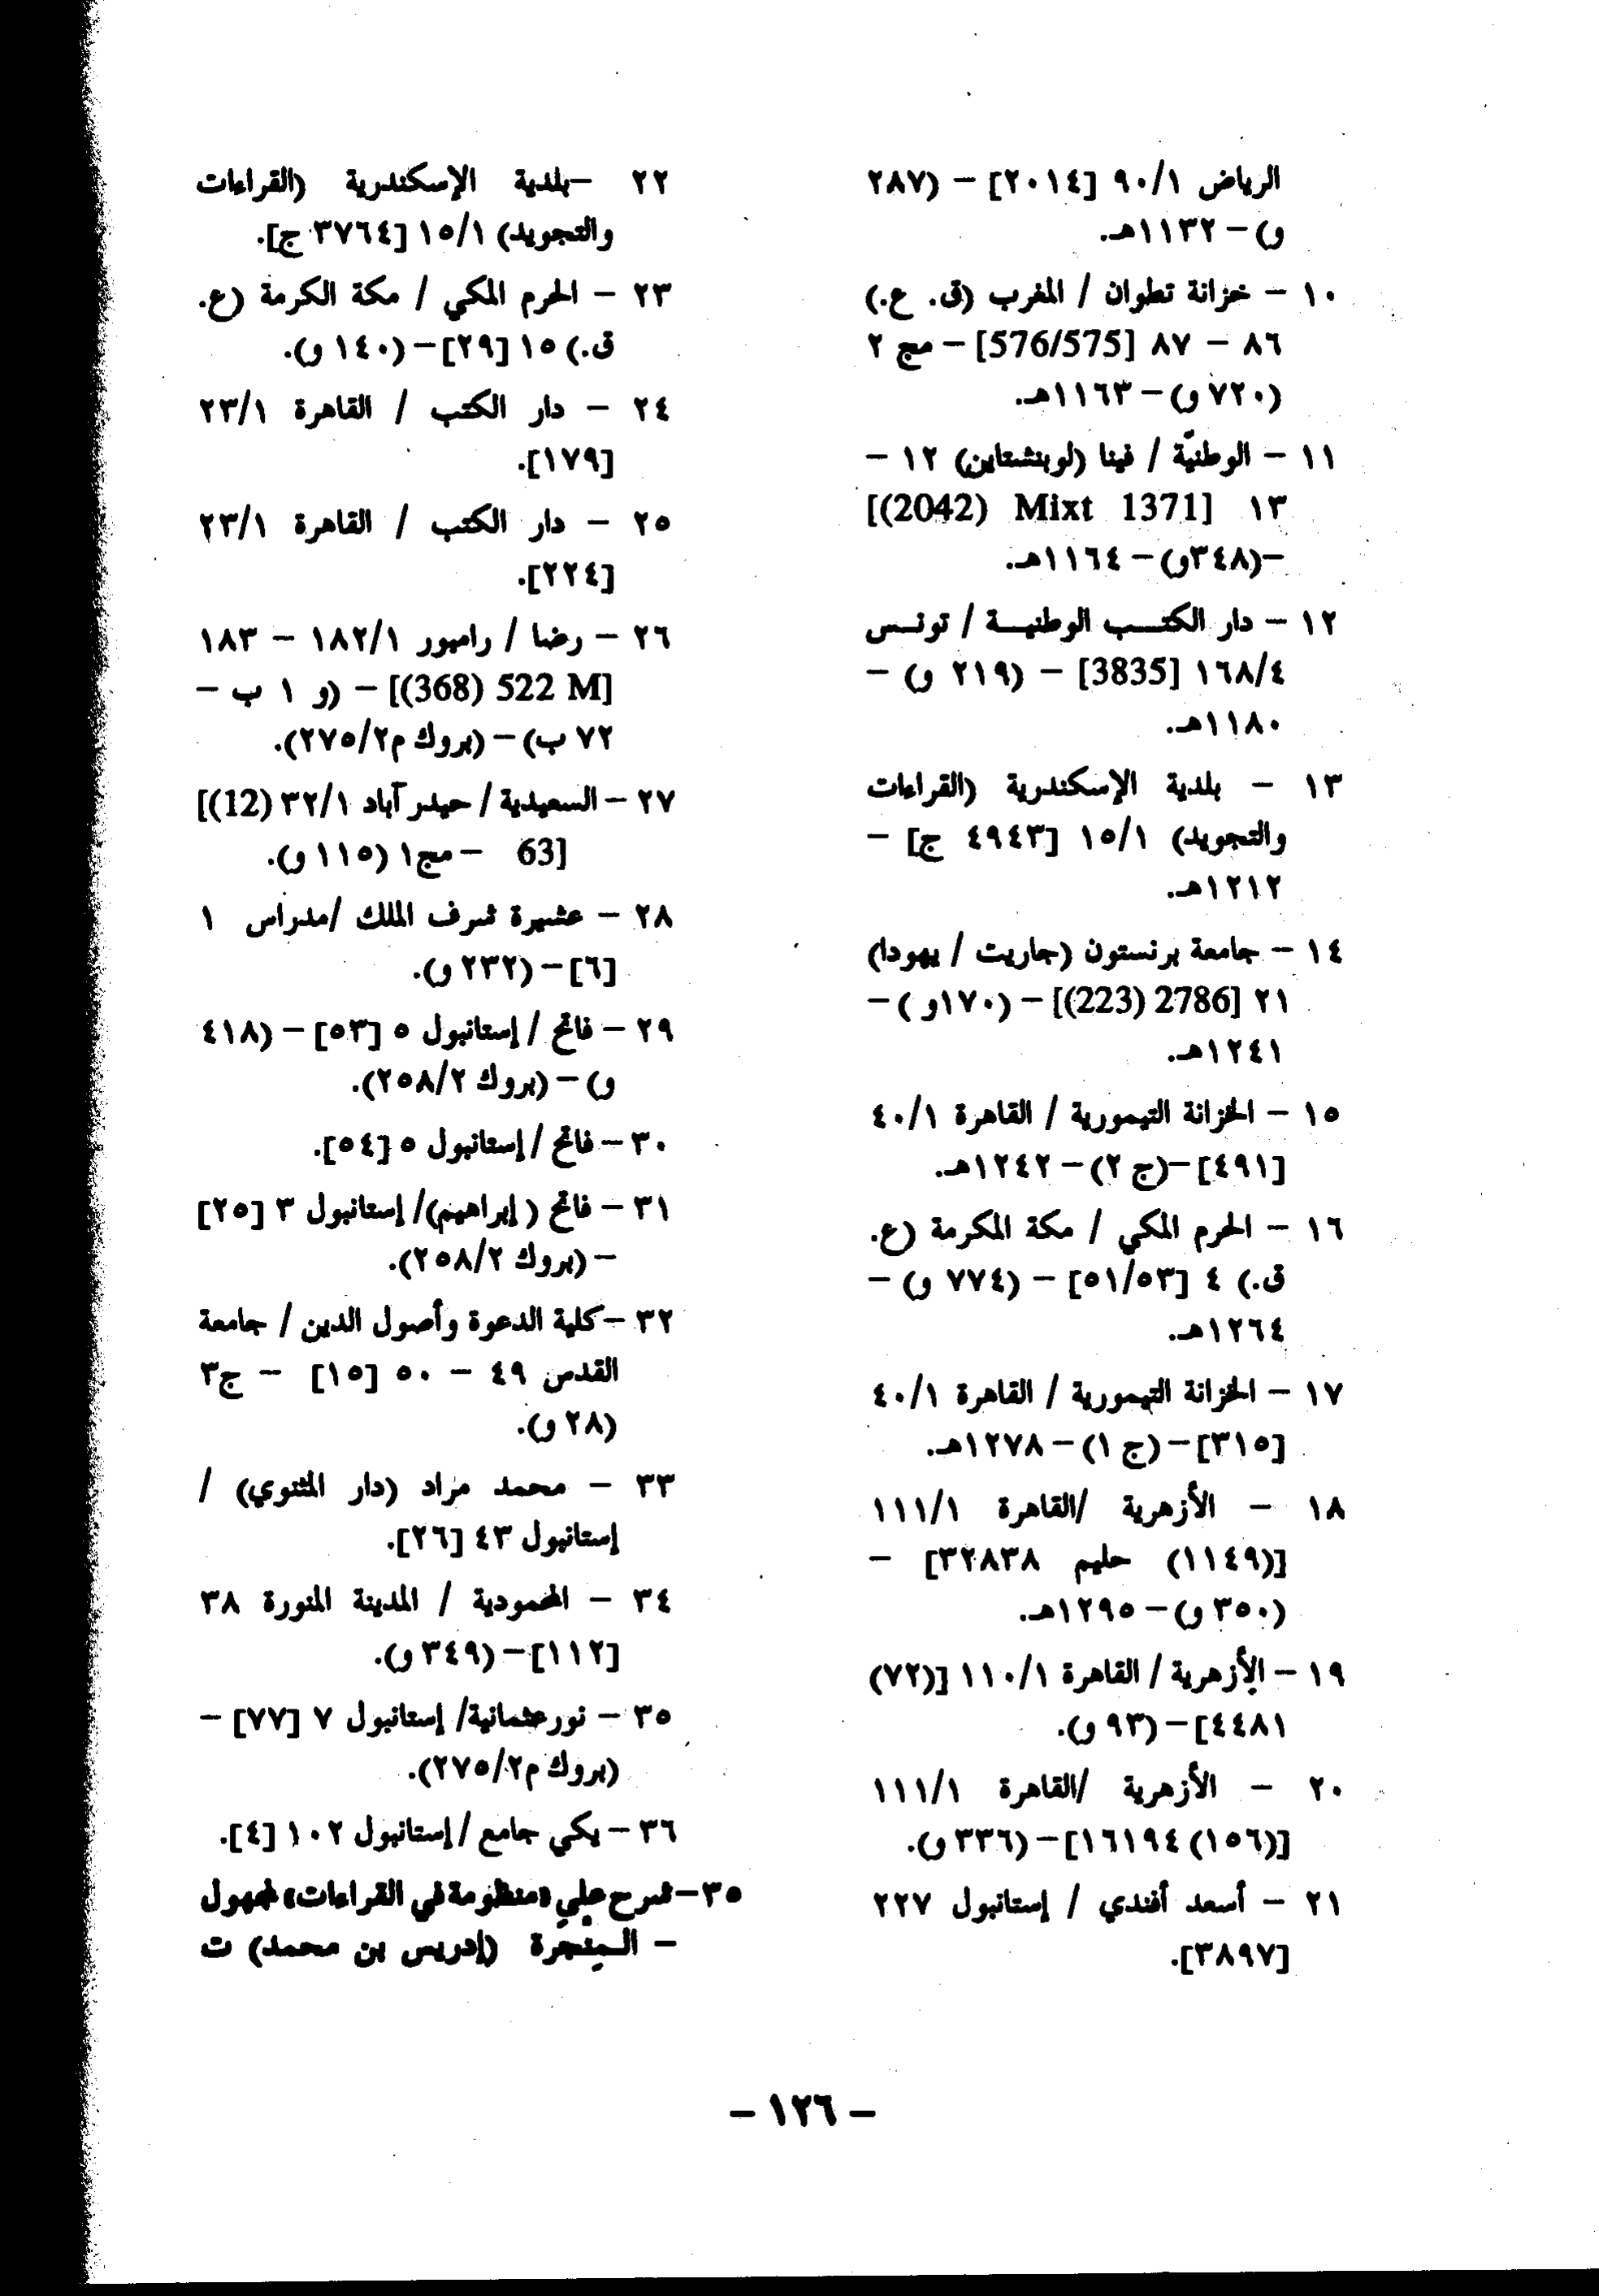 الرياض ٩٠/١ [٢٠١٤] – (٢٨٧
و) – ١١٣٢هـ.
١٠ – خزانة تطوان / المغرب (ق. ع.)
٨٦ – ٨٧ [576/575] – مج ٢
(٧٢٠ و) – ١١٦٣هـ.
١١ – الوطنيّة / فينا (لوبنشتاين) ١٢ –
١٣ [(2042) Mixt 1371]
–(٣٤٨و) – ١١٦٤هـ.
١٢ – دار الكتـــب الوطنيـــة / تونـس
١٦٨/٤ [3835] – (٢١٩ و) –
١١٨٠هـ.
١٣ – بلدية الإسكندرية (القراءات
والتجويد) ١٥/١ [٤٩٤٣ ج] –
١٢١٢هـ.
١٤ – جامعة برنستون (جاريت / يهودا)
٢١ [(223) 2786] – (١٧٠و ) –
١٢٤١هـ.
١٥ – الخزانة التيمورية / القاهرة ٤٠/١
[٤٩١] –(ج ٢) – ١٢٤٢هـ.
١٦ – الحرم المكي / مكة المكرمة (ع.
ق.) ٤ [٥١/٥٣] – (٧٧٤ و) –
١٢٦٤هـ.
١٧ – الخزانة التيمورية / القاهرة ٤٠/١
[٣١٥] – (ج ١) – ١٢٧٨هـ.
١٨ – الأزهرية /القاهرة ١١١/١
[(١١٤٩) حليم ٣٢٨٣٨] –
(٣٥٠ و) – ١٢٩٥هـ.
١٩ – الأزهرية / القاهرة ١١٠/١ [(٧٢)
٤٤٨١] – (٩٣ و).
٢٠ – الأزهرية /القاهرة ١١١/١
[(١٥٦) ١٦١٩٤] – (٣٣٦ و).
٢١ – أسعد أفندي / إستانبول ٢٢٧
[٣٨٩٧].
٢٢ –بلدية الإسكندرية (القراءات
والتجويد) ١٥/١ [٣٧٦٤ ج].
٢٣ – الحرم المكي / مكة الكرمة (ع.
ق.) ١٥ [٢٩] – (١٤٠ و).
٢٤ – دار الكتب / القاهرة ٢٣/١
[١٧٩].
٢٥ – دار الكتب / القاهرة ٢٣/١
[٢٢٤].
٢٦ – رضا / رامبور ١٨٢/١ – ١٨٣
[(368) 522 M] – (و ١ ب –
٧٢ ب) – (بروك م٢٧٥/٢).
٢٧ – السعيدية / حيدر آباد ٣٢/١ [(12)
63] – مج١ (١١٥ و).
٢٨ – عشيرة شرف الملك /مدراس ١
[٦] – (٢٣٢ و).
٢٩ – فاتح / إستانبول ٥ [٥٣] – (٤١٨
و) – (بروك ٢٥٨/٢).
٣٠ – فاتح / إستانبول ٥ [٥٤].
٣١ – فاتح ( إبراهيم)/ إستانبول ٣ [٢٥]
– (بروك ٢٥٨/٢).
٣٢ – كلية الدعوة وأصول الدين / جامعة
القدس ٤٩ – ٥٠ [١٥] – ج٣
(٢٨ و).
٣٣ – محمد مراد (دار المثنوي) /
إستانبول ٤٣ [٢٦].
٣٤ – المحمودية / المدينة المنورة ٣٨
[١١٢] – (٣٤٩ و).
٣٥ – نورعثمانية/ إستانبول ٧ [٧٧] –
(بروك م٢٧٥/٢).
٣٦ – يكي جامع / إستانبول ١٠٢ [٤].
٣٥ – شرح على «منظومة في القراءات» لمجهول
– المنجرة (إدريس بن محمد) ت
– ١٢٦ –